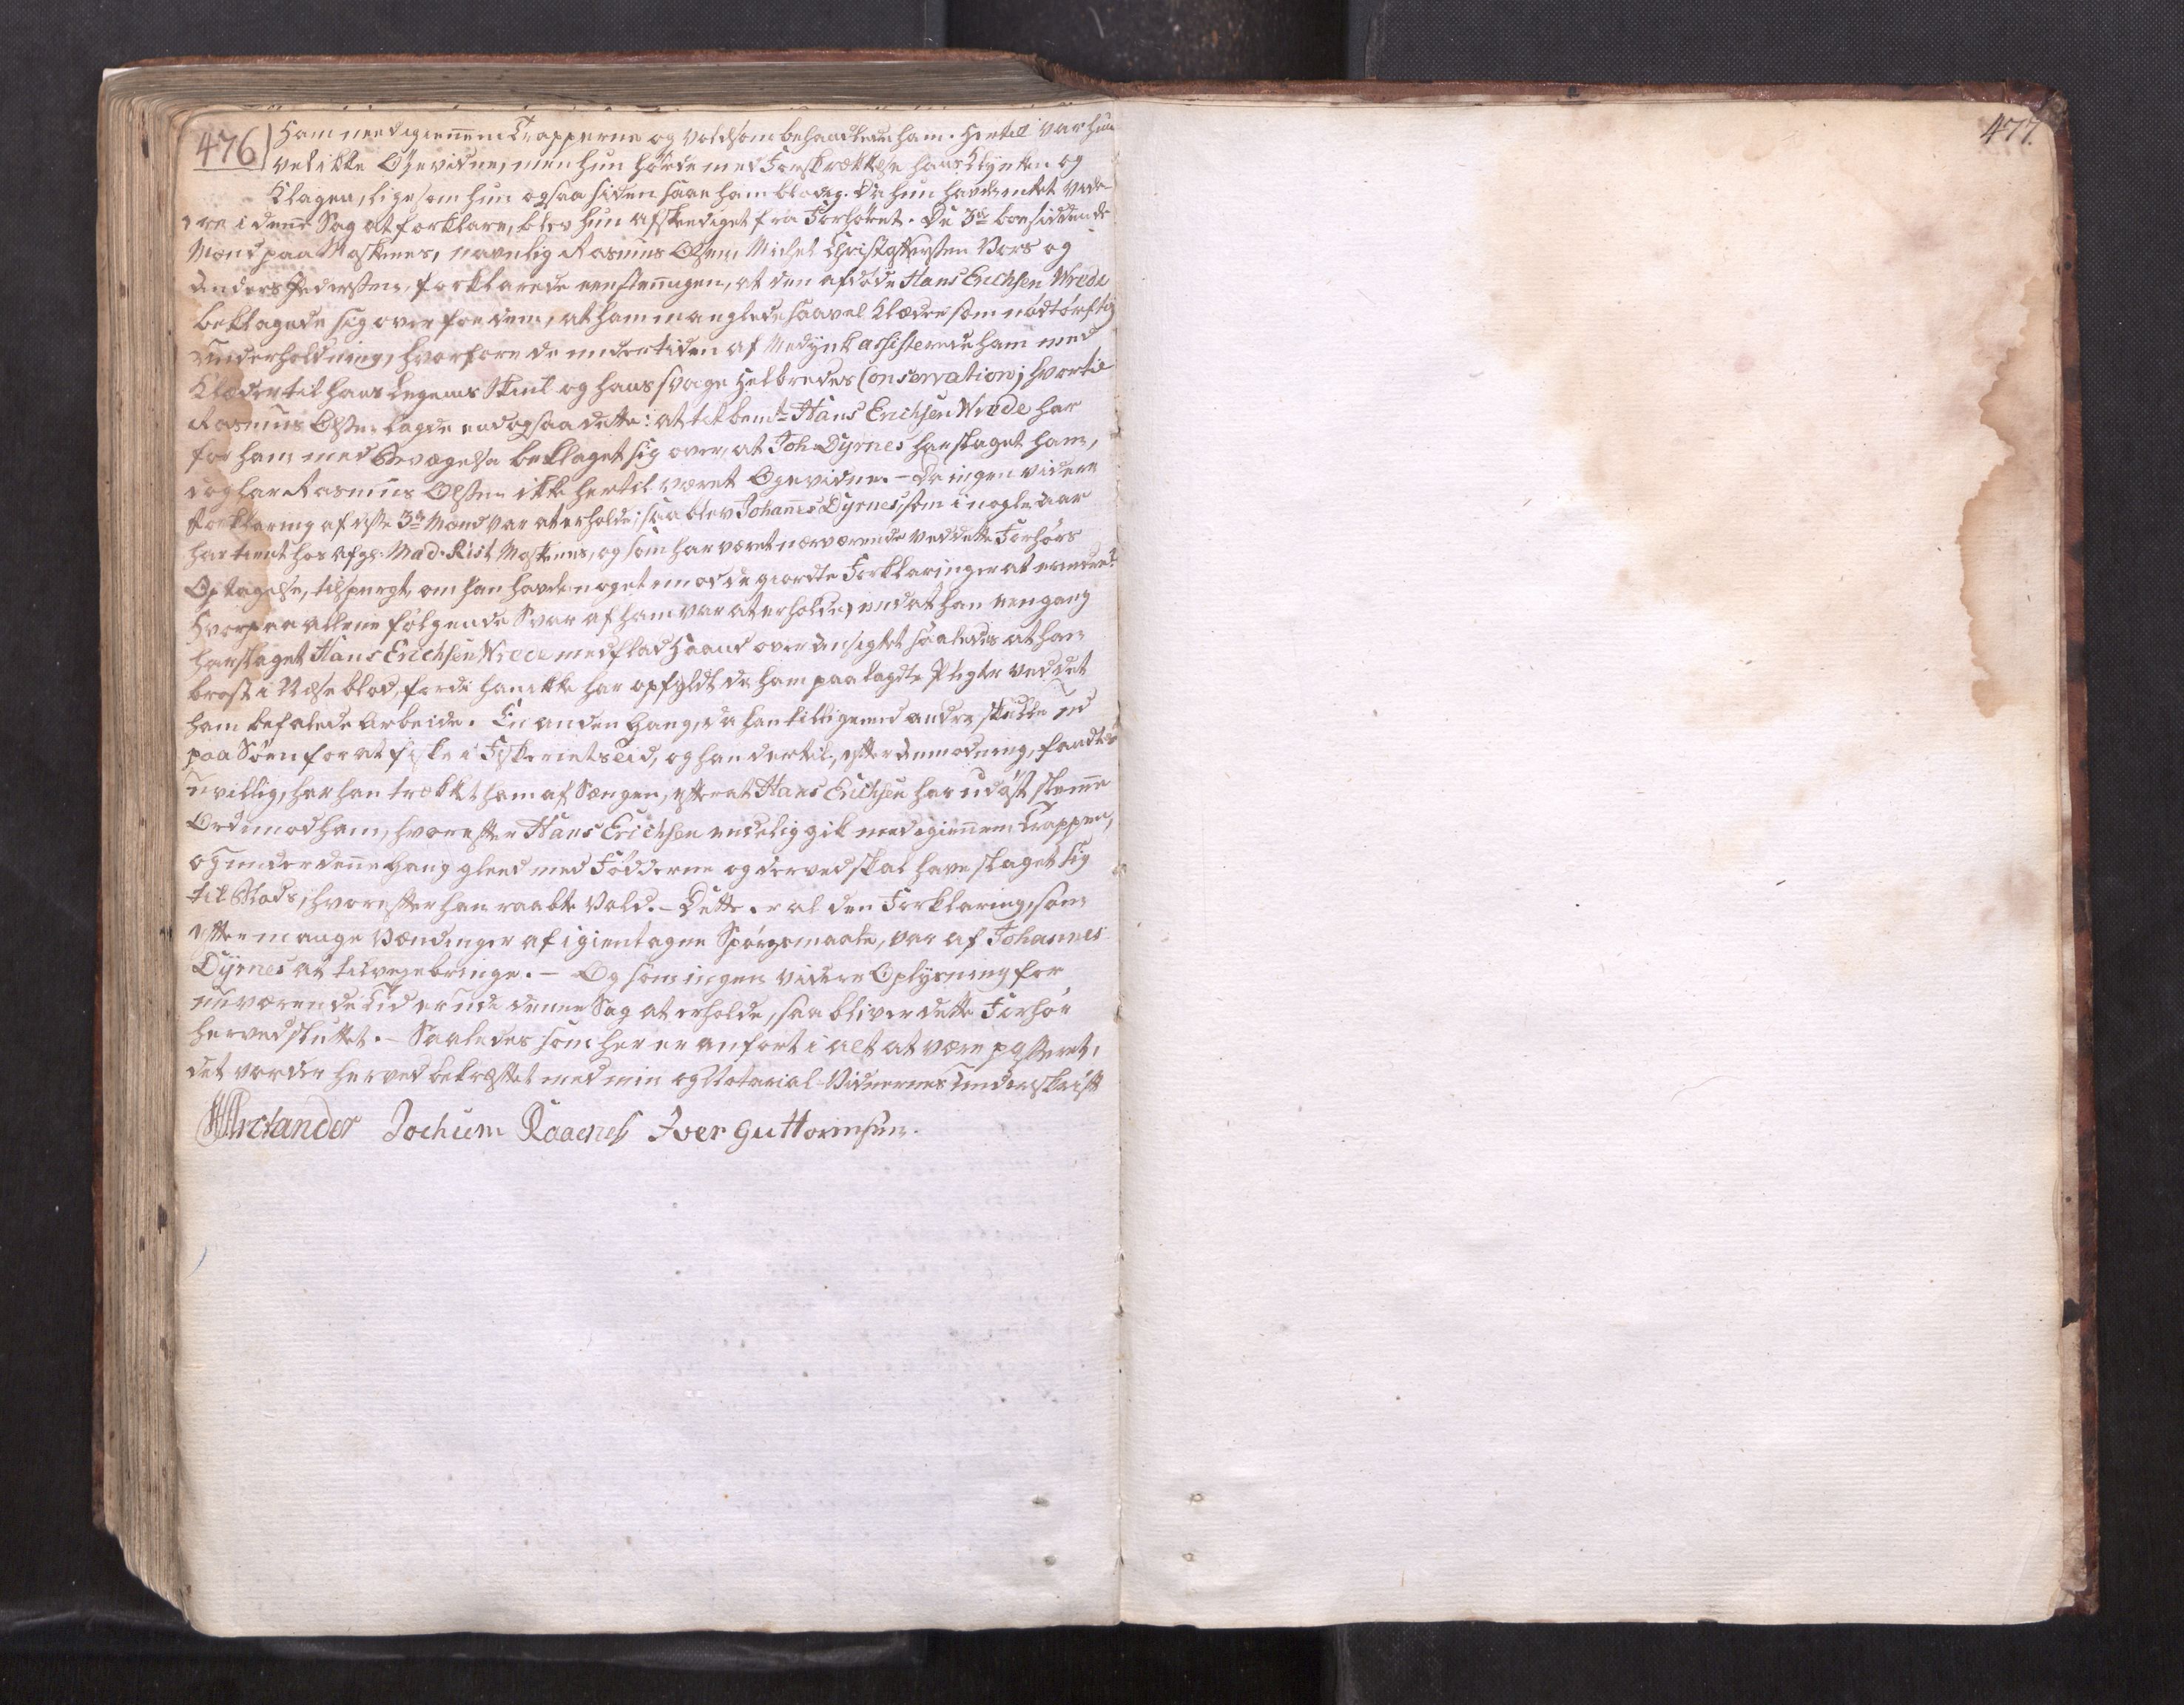 476
477.
ham ned igiennem Trapperne og voldsom behandlede ham. Hertil var hun
vel ikke Øyevidne, men hun hørde med Forskrækkelse hans Klynken og
Klagen, ligesom hun ogsaa siden saae ham blodig. Da hun havde intet vide-
re i denne Sag at forklare, blev hun afskediget fra Forhøret. De 3de boesiddende
Mænd paa Moskenes, navnlig Rasmus Olsen, Michel Christophersen Bors og
Anders Pedersen, forklarede eenstemigen, at den afdøde Hans Erichsen Wrede
beklagede sig over for dem, at ham manglede saavel Klæder som nødtørftig
Underholdning, hvorfore de undertiden af Medynk assisterede ham med
Klæder til hans Legems Skiul og hans svage Helbredes Conservation; hvortil
Rasmus Olsen lagde endogsaa dette: at tit bemte Hans Erichsen Wrede har
for ham med Bevægelse beklaget sig over, at Joh. Dyrnes har slaget ham,
dog har Rasmus Olsen ikke hertil været Øyevidne. – Da ingen videre
Forklaring af disse 3de Mænd var at erholde; saa blev Johannes Dyrnes, som i nogle Aar
har tient hos Afg. Mad. Rist Moskenes, og som har været nærværende ved dette Forhørs
Optagelse, tilspurgt, om han havde noget imod de giordte Forklaringer at erindre?
Hvorpaa allene følgende Svar af ham var at erholde, end at han een gang
har slaget Hans Erichsen Wrede med flad Haand over Ansigtet saaledes at han
brast i Næseblod, fordi han ikke har opfyldt de ham paalagdte Pligter ved det
ham befalede Arbeide. En anden Gang, da han tilligemed andre skulde ud
paa Søen for at fiske i Fiskeriets Tid, og han dertil, efter Anmodning, fandtes
uvillig, har han trækkt ham af Sængen, efterat Hans Erichsen har udøst slemme
Ord imod ham, hvorefter Hans Erichsen endelig gik ned igiennem Trappen,
og under denne Gang gleed med Fødderne og derved skal have slaget sig
til Blods, hvorefter han raabte Vold. – Dette er al den Forklaring, som
efter mange Vændinger af igientagne Spørgsmaale, var af Johannes
Dyrnes at tilvejebringe. – Og som ingen videre Oplysning for
nuværende Tid er udi denne Sag at erholde, saa bliver dette Forhør
herved sluttet. – Saaledes som her er anført i alt at være passeret,
det vorder herved bekræftet med min og Notarial-Vidnernes Underskrift
Arctander Jochum Raaenes Iver Guttormsen.